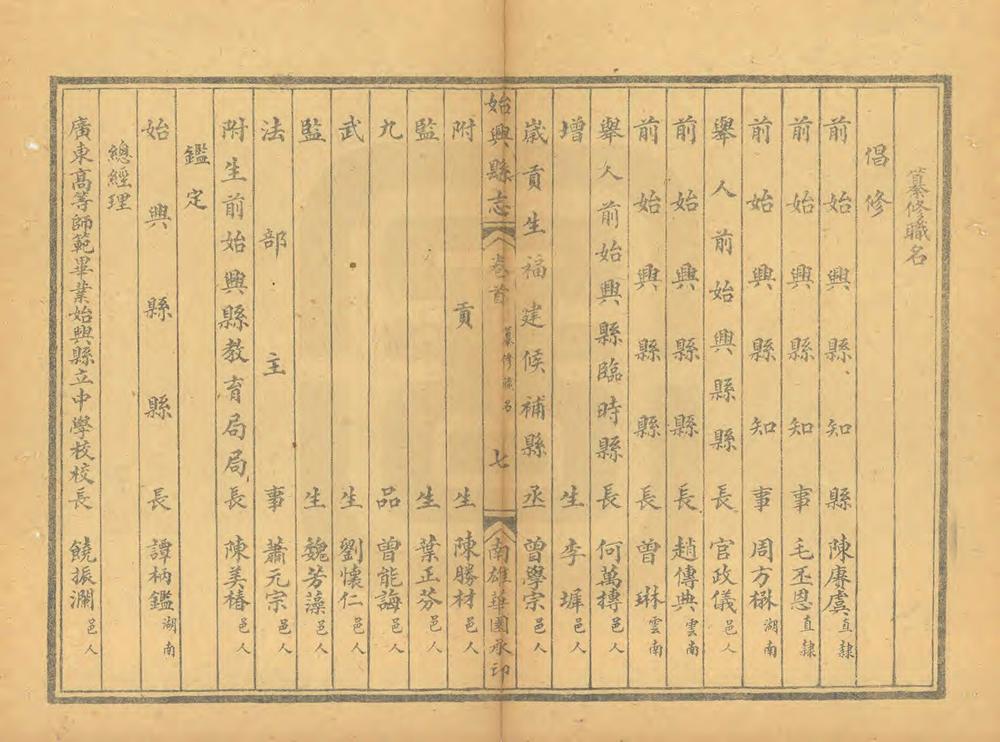 纂修職名
倡修
前始興縣知縣陳賡虞直隸
前始興縣知事毛丕恩直隸
前始興縣知事周方楙湖南
舉人前始興縣縣長官政儀邑人
前始興縣縣長趙傳典雲南
前始興縣縣長曾琳雲南
舉人前始興縣臨時縣長何萬摶邑人
增生李墀邑人
歲貢生福建候補縣丞曾學宗邑人
始興縣志 卷首 纂修職名 七 南雄華園承印
附貢生陳勝材邑人
監生葉正芬邑人
九品曾能誨邑人
武生劉懷仁邑人
監生魏芳藻邑人
法部主事蕭元宗邑人
附生前始興縣教育局局長陳美椿邑人
鑑定
始興縣縣長譚柄鑑湖南
總經理
廣東高等師範畢業始興縣立中學校校長饒振瀾邑人